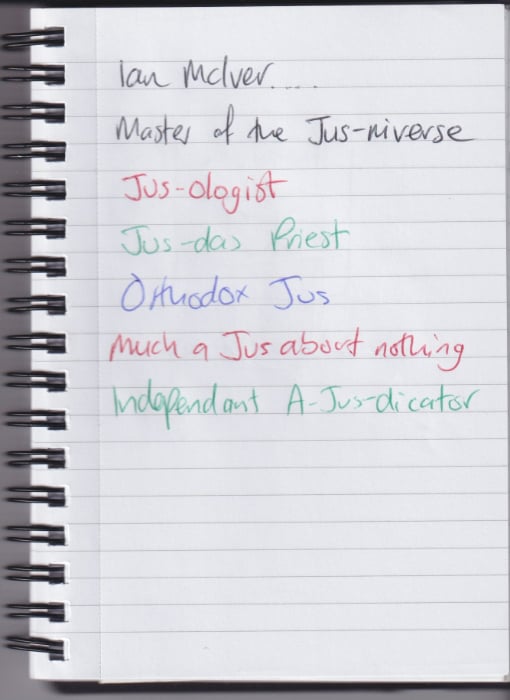 Ian McIver.....
Master of the Jus-niverse
Jus-ologist
Jus-das Priest
Orthodox Jus
Much a Jus about nothing
Independant A-Jus-dicator